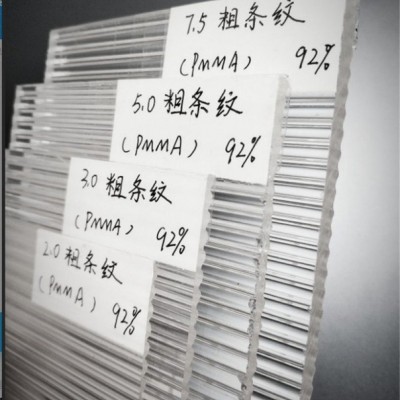 7.5 粗条纹
(PMMA) 92%
5.0 粗条纹
(PMMA) 92%
3.0 粗条纹
(PMMA) 92%
2.0 粗条纹
(PMMA) 92%